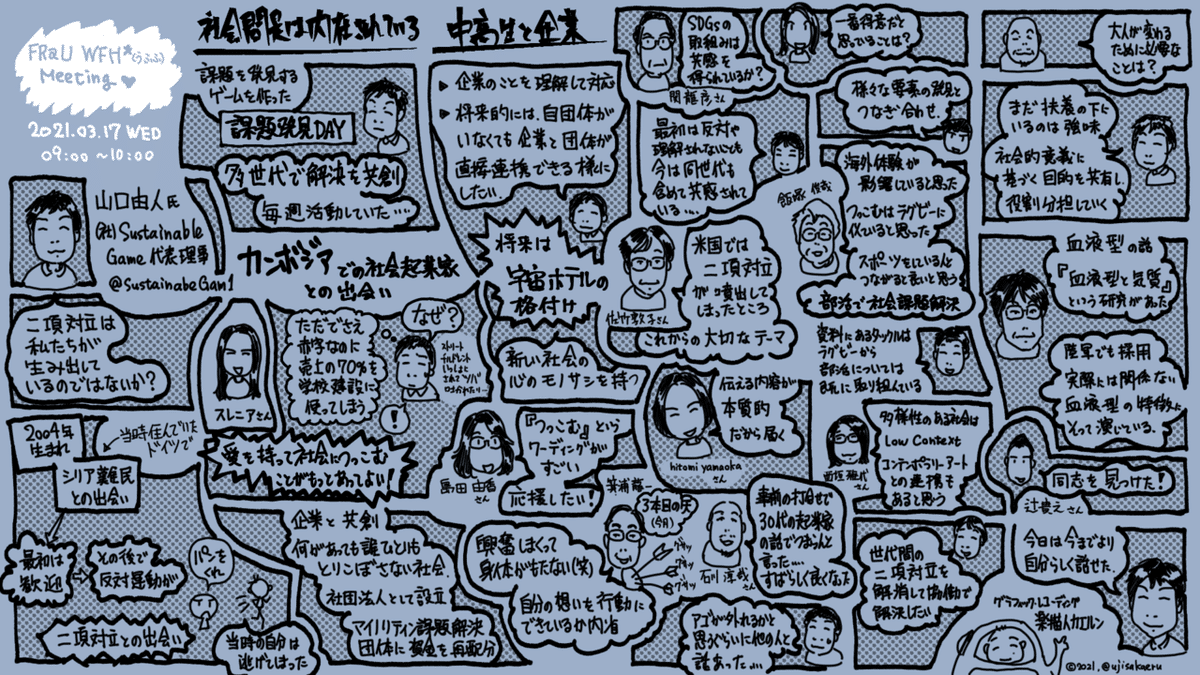 FRaU WFH*(うふふ)
Meeting
2021.03.17 WED
09:00~10:00
山口由人氏
(社)Sustainable
Game 代表理事
@SustainabeGam1
二項対立は
私たちが
生み出して
いるのではないか?
2004年
生まれ
当時住んでいた
ドイツで
シリア難民
との出会い
最初は
歓迎
その後で
反対運動が
パンを
くれ
二項対立との出会い
当時の自分は
逃げてしまった
社会問題は内在されている
課題を発見する
ゲームを作った
課題発見DAY
多世代で解決を共創
毎週活動していた...
カンボジアでの社会起業家
との出会い
スレニアさん
ただでさえ
赤字なのに
売上の70%を
学校建設に
使ってしまう
なぜ?
!
愛を持って社会につっこむ
ことがもっとあってよい!
企業と共創
何があっても誰ひとりも
とりこぼさない社会
社団法人として設立
マイノリティン課題解決
団体に資金を再配分
中高生と企業
▶ 企業のことを理解して対応
▶ 将来的には、自団体が
いなくても企業と団体が
直接連携できる様に
したい
将来は
宇宙ホテルの
格付け
新しい社会の
心のモノサシを持つ
島田由香
さん
『つっこむ』という
ワーディングが
すごい
応援したい!
興奮しまくって
身体がもたない(笑)
自分の想いを行動に
できているか内省
箕浦龍一
3本目の矢
(今月)
グサッ
グサッ
グサッ
石川淳哉
さん
事前の打合せで
30代の起業家
の話でつまらんと
言った...
すばらしく良くなった
アゴが外れるかと
思うぐらいに他の人と
話あった...
SDGsの
取組みは
共感を
得られているか?
関龍彦さん
最初は反対や
理解されないでも
今は同世代も
含めて共感されて
いる...
佐竹敦子さん
米国では
二項対立
が噴出して
しまったところ
これからの大切なテーマ
hitomi yamaoka
さん
伝える内容が
本質的
だから届く
一番得意だと
思っていることは?
様々な要素の発見と
つなぎ合わせ
海外体験が
影響していると思った
つっこむはラグビーに
似ていると思った
スポーツをしていると
つながると良いと思う
部活で社会課題解決
資料にあるタックルは
ラグビーから
部活については
既に取り組んでいる
さん
多様性のある社会は
Low Context
コンテンポラリーアート
との連携も
あると思う
世代間の
二項対立を
解消して協働で
解決したい
大人が変わる
ために必要な
ことは?
まだ扶養の下に
いるのは強味
社会的意義に
基づく目的を共有し
役割分担していく
血液型の話
『血液型と気質』
という研究があった
陸軍でも採用
実際には関係ない
血液型の特徴に
そって演じている.
同志を見つけた!
辻貴之さん
今日は今までより
自分らしく話せた.
グラフィックレコーディング
楽描人カエルン
©2021, @ujisakaeru